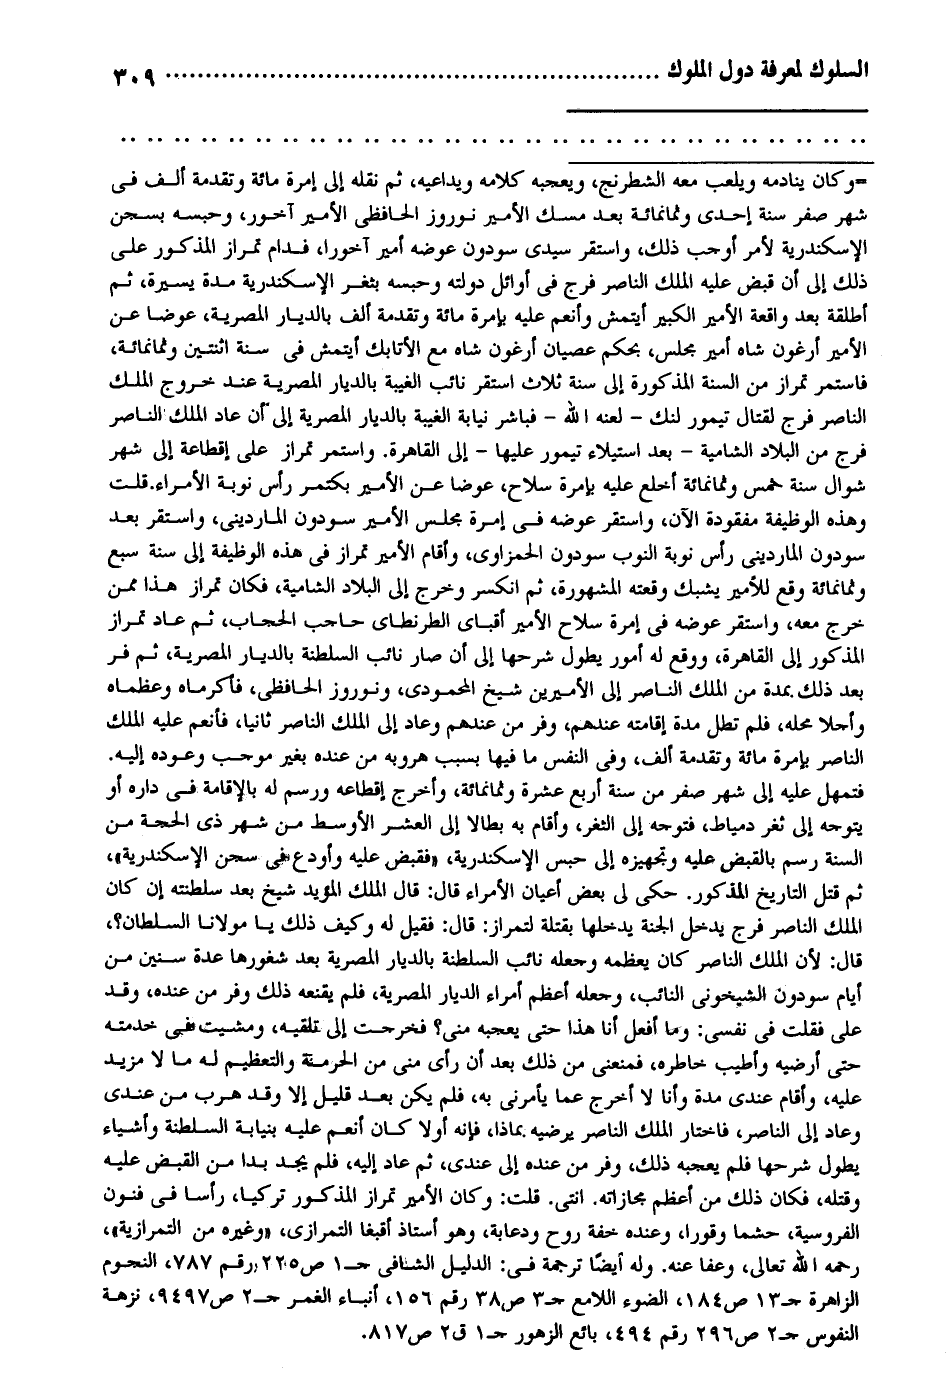 السلوك لمعرفة دول الملوك ............................................................... ٣٠٩
.. .. .. .. .. .. .. .. .. .. .. .. .. .. .. .. .. .. .. .. .. .. .. .. .. .. .. ..
=وكان ينادمه ويلعب معه الشطرنج، ويعجبه كلامه ويداعيه، ثم نقله إلى إمرة مائة وتقدمة ألف فى
شهر صفر سنة إحدى وثمانمائة بعد مسك الأمير نوروز الحافظى الأمير آخور، وحبسه بسجن
الإسكندرية لأمر أوجب ذلك، واستقر سيدى سودون عوضه أمير آخورا، فدام تمراز المذكور على
ذلك إلى أن قبض عليه الملك الناصر فرج فى أوائل دولته وحبسه بثغر الإسكندرية مدة يسيرة، ثم
أطلقة بعد واقعة الأمير الكبير أيتمش وأنعم عليه بإمرة مائة وتقدمة ألف بالديار المصرية، عوضا عن
الأمير أرغون شاه أمير مجلس، بحكم عصيان أرغون شاه مع الأتابك أيتمش فى سنة اثنتين وثمانمائة،
فاستمر تمراز من السنة المذكورة إلى سنة ثلاث استقر نائب الغيبة بالديار المصرية عند خروج الملك
الناصر فرج لقتال تيمور لنك - لعنه الله - فباشر نيابة الغيبة بالديار المصرية إلى أن عاد الملك الناصر
فرج من البلاد الشامية - بعد استيلاء تيمور عليها - إلى القاهرة. واستمر تمراز على إقطاعة إلى شهر
شوال سنة خمس وثمانمائة أخلع عليه بإمرة سلاح، عوضا عن الأمير بكتمر رأس نوبة الأمراء.قلت
وهذه الوظيفة مفقودة الآن، واستقر عوضه فى إمرة مجلس الأمير سودون الماردينى، واستقر بعد
سودون الماردينى رأس نوبة النوب سودون الحمزاوى، وأقام الأمير تمراز فى هذه الوظيفة إلى سنة سبع
وثمانمائة وقع للأمير يشبك وقعته المشهورة، ثم انكسر وخرج إلى البلاد الشامية، فكان تمراز هذا ممن
خرج معه، واستقر عوضه فى إمرة سلاح الأمير أقباى الطرنطاى حاجب الحجاب، ثم عاد تمراز
المذكور إلى القاهرة، ووقع له أمور يطول شرحها إلى أن صار نائب السلطنة بالديار المصرية، ثم فر
بعد ذلك بمدة من الملك الناصر إلى الأميرين شيخ المحمودى، ونوروز الحافظى، فأكرماه وعظماه
وأحلا محله، فلم تطل مدة إقامته عندهم، وفر من عندهم وعاد إلى الملك الناصر ثانيا، فأنعم عليه الملك
الناصر بإمرة مائة وتقدمة ألف، وفى النفس ما فيها بسبب هروبه من عنده بغير موجب وعوده إليه.
فتمهل عليه إلى شهر صفر من سنة أربع عشرة وثمانمائة، وأخرج إقطاعه ورسم له بالإقامة فى داره أو
يتوجه إلى ثغر دمياط، فتوجه إلى الثغر، وأقام به بطالا إلى العشر الأوسط من شهر ذى الحجة من
السنة رسم بالقبض عليه وتجهيزه إلى حبس الإسكندرية، «فقبض عليه وأودع فى سجن الإسكندرية»،
ثم قتل التاريخ المذكور. حكى لى بعض أعيان الأمراء قال: قال الملك المؤيد شيخ بعد سلطنته إن كان
الملك الناصر فرج يدخل الجنة يدخلها بقتلة لتمراز: قال: فقيل له وكيف ذلك يا مولانا السلطان؟،
قال: لأن الملك الناصر كان يعظمه وجعله نائب السلطنة بالديار المصرية بعد شغورها عدة سنين من
أيام سودون الشيخونى النائب، وجعله أعظم أمراء الديار المصرية، فلم يقنعه ذلك وفر من عنده، وقد
على فقلت فى نفسى: وما أفعل أنا هذا حتى يعجبه منى؟ فخرجت إلى تلقيه، ومشيت فى خدمته
حتى أرضيه وأطيب خاطره، فمنعنى من ذلك بعد أن رأى منى من الحرمة والتعظيم له ما لا مزيد
عليه، وأقام عندى مدة وأنا لا أخرج عما يأمرنى به، فلم يكن بعد قليل إلا وقد هرب من عندى
وعاد إلى الناصر، فاختار الملك الناصر يرضيه بماذا، فإنه أولا كان أنعم عليه بنيابة السلطنة وأشياء
يطول شرحها فلم يعجبه ذلك، وفر من عنده إلى عندى، ثم عاد إليه، فلم يجد بدا من القبض عليه
وقتله، فكان ذلك من أعظم مجازاته. انتى. قلت: وكان الأمير تمراز المذكور تركيا، رأسا فى فنون
الفروسية، حشما وقورا، وعنده خفة روح ودعابة، وهو أستاذ أقبغا التمرازى، «وغيره من التمرازية»،
رحمه الله تعالى، وعفا عنه. وله أيضًا ترجمة فى: الدليل الشافى حـ١ ص٢٢٥ رقم ٧٨٧، النجوم
الزاهرة حـ١٣ ص١٨٤، الضوء اللامع حـ٣ ص٣٨ رقم ١٥٦، أنباء الغمر حـ٢ ص٩٤٩٧، نزهة
النفوس حـ٢ ص٢٩٦ رقم ٤٩٤، بائع الزهور حـ١ ق٢ ص٨١٧.